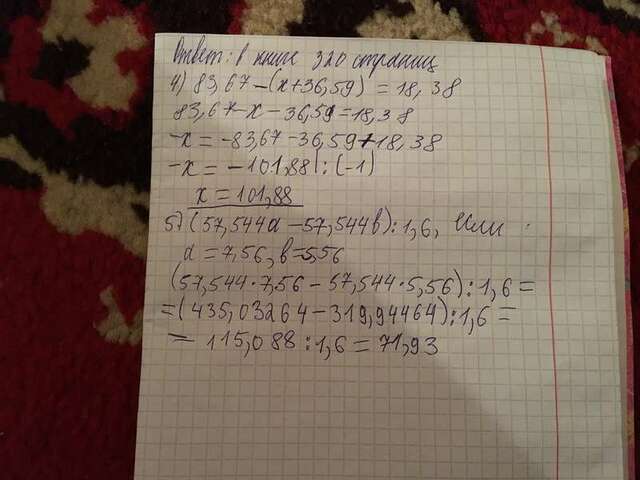 Ответ: 1 книга 320 страниц
4) 83,67 - (x + 36,59) = 18,38
83,67 - x - 36,59 = 18,38
-x = -83,67 + 36,59 + 18,38
-x = -101,88 | : (-1)
x = 101,88
5) (57,544a - 57,544b) : 1,6, если
a = 7,56, b = 5,56
(57,544·7,56 - 57,544·5,56) : 1,6 =
= (435,03264 - 319,94464) : 1,6 =
= 115,088 : 1,6 = 71,93